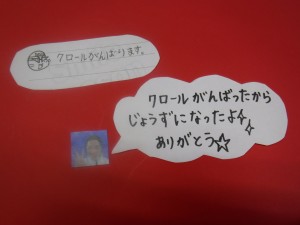 クロールがんばります。
クロールがんばったから
じょうずになったよ
ありがとう